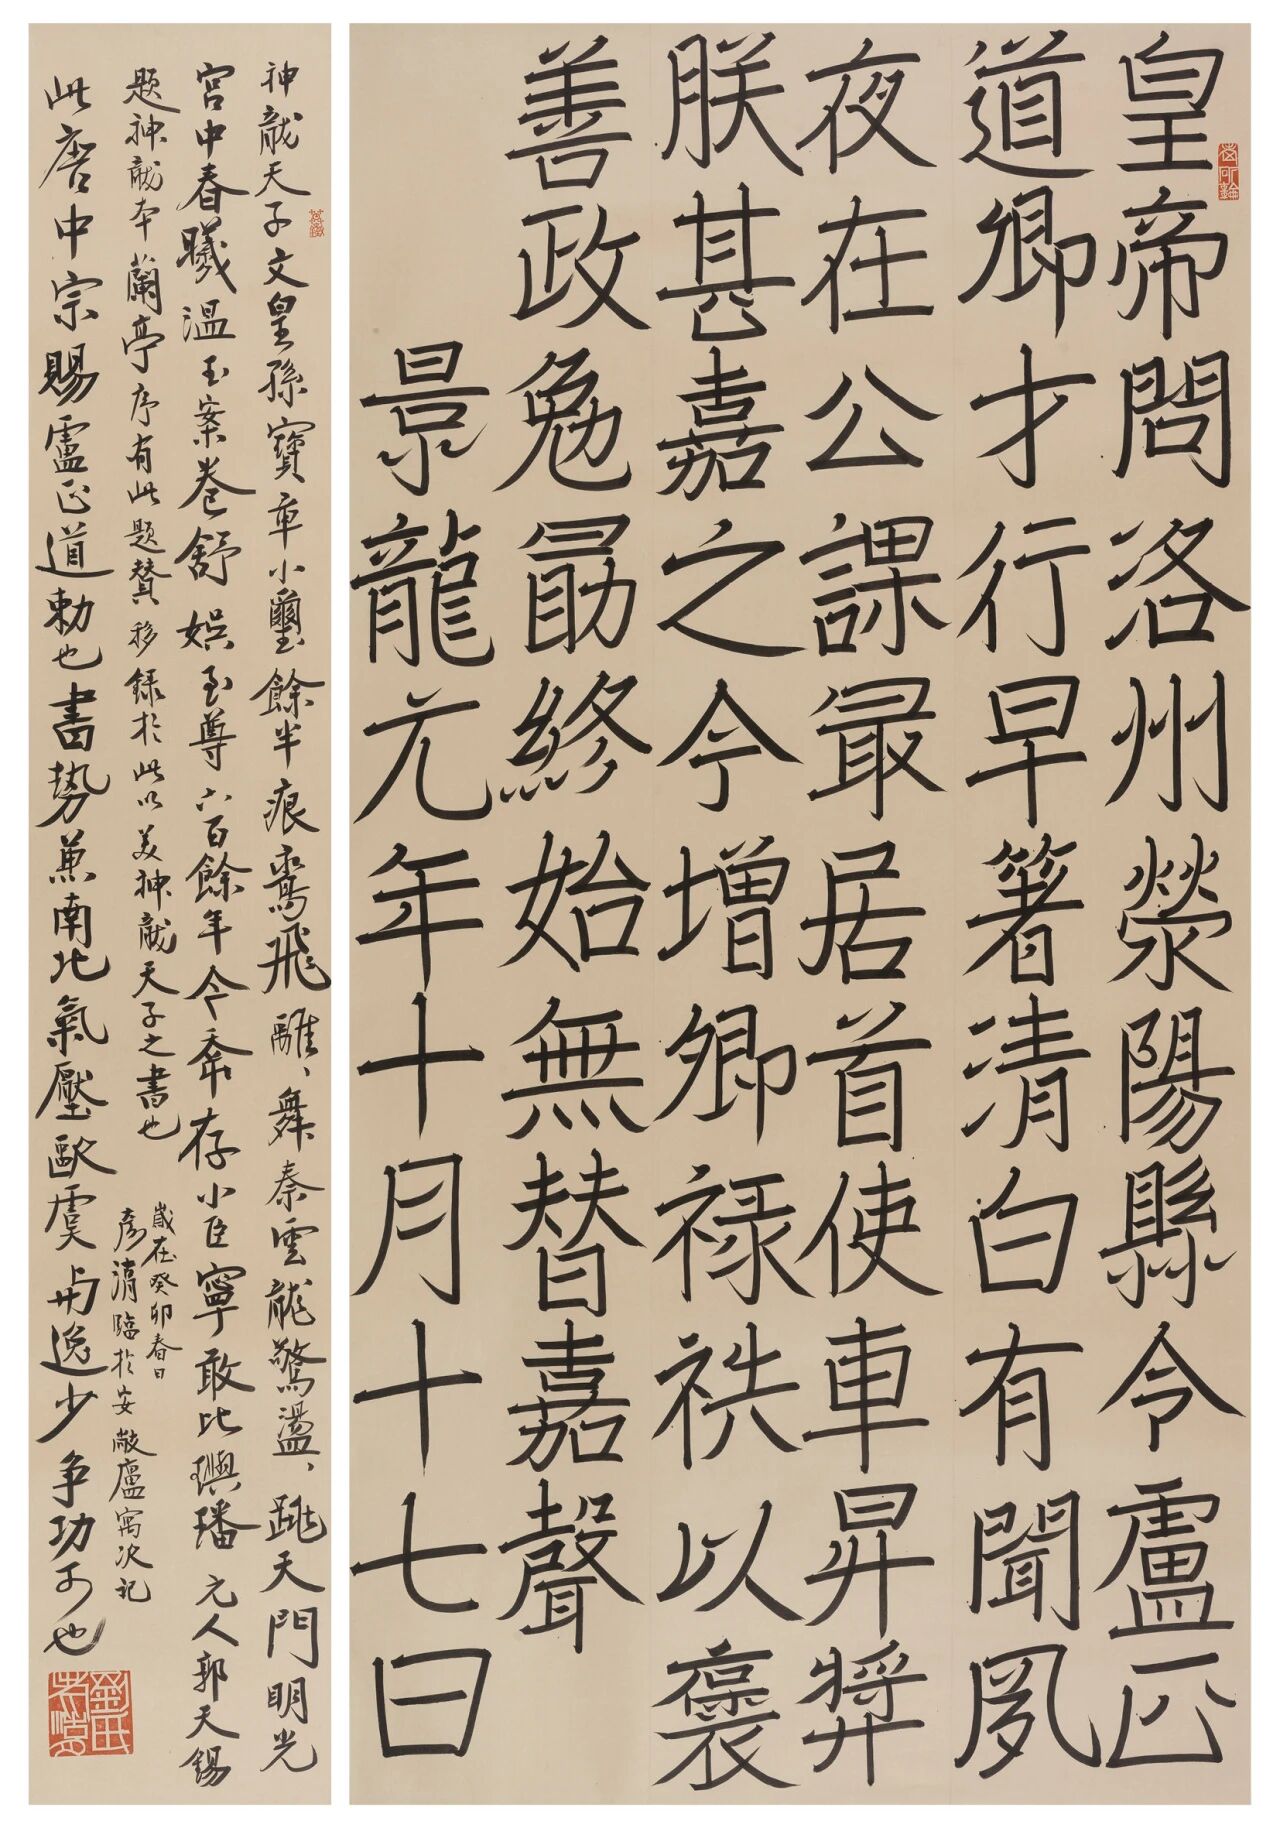 皇帝問洛州滎陽縣令盧正
道卿才行早著清白有聞夙
夜在公課最居首使車昇獎
朕甚嘉之今增卿祿秩以褒
善政勉勗終始無替嘉聲
景龍元年十月十七日
神龍天子文皇孫寶章小璽餘半痕鸞飛離、舞秦雲龍驚盪、跳天門明光
宮中春曦溫玉案卷舒娛至尊六百餘年今幸存小臣寧敢比璵璠 元人郭天錫
題神龍本蘭亭序有此題贊移錄於此以美神龍天子之書也
歲在癸卯春日
彥湖臨於安敞廬寓次記
此唐中宗賜盧正道勅也書勢兼南北氣壓歐虞與逸少爭功可也